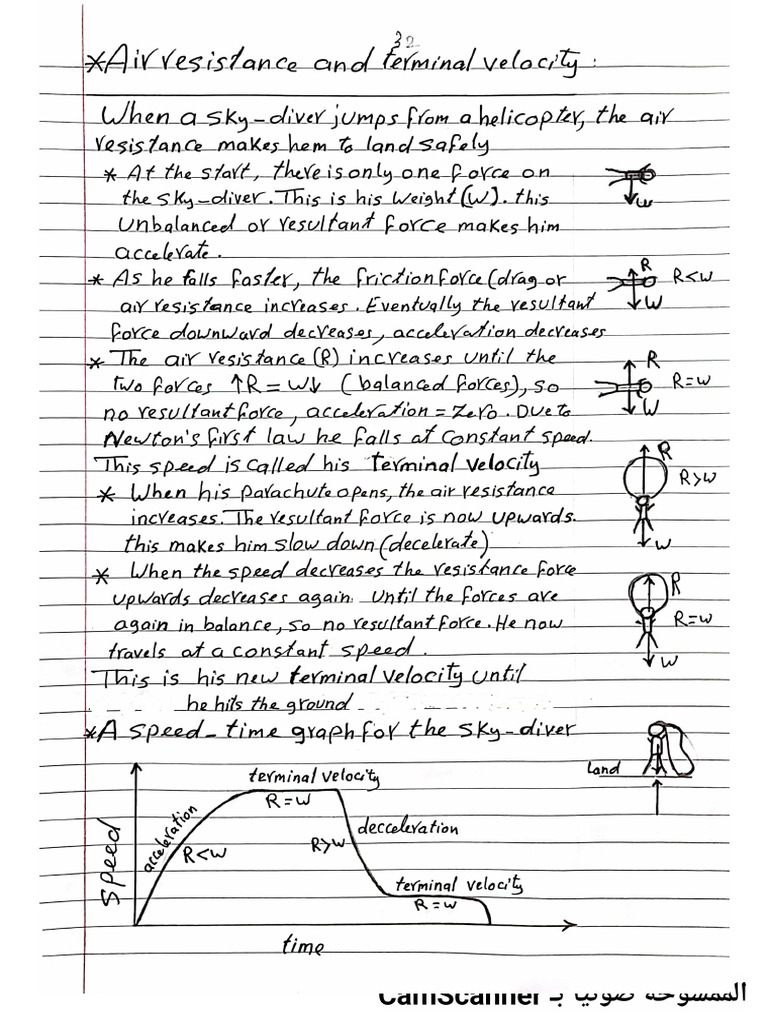 32
*Air resistance and terminal velocity :
When a sky-diver jumps from a helicopter, the air
resistance makes hem to land safely
* At the start, there is only one force on
the sky-diver. This is his weight (W). this
unbalanced or resultant force makes him
accelerate.
W
* As he falls faster, the friction force (drag or
air resistance increases. Eventually the resultant
force downward decreases, acceleration decreases
R
R<W
W
* The air resistance (R) increases until the
two forces ↑R = W↓ (balanced forces), so
no resultant force, acceleration = Zero. Due to
Newton's first law he falls at constant speed.
This speed is called his terminal velocity
R
R=W
W
* When his parachute opens, the air resistance
increases. The resultant force is now upwards.
this makes him slow down (decelerate)
R
R>W
W
* When the speed decreases the resistance force
upwards decreases again. until the forces are
again in balance, so no resultant force. He now
travels at a constant speed.
This is his new terminal velocity until
he hits the ground
R
R=W
W
*A speed-time graph for the sky-diver
Land
terminal velocity
R=W
acceleration
R<W
R>W
decceleration
terminal velocity
R=W
speed
time
الممسوحة ضوئيا بـ CamScanner